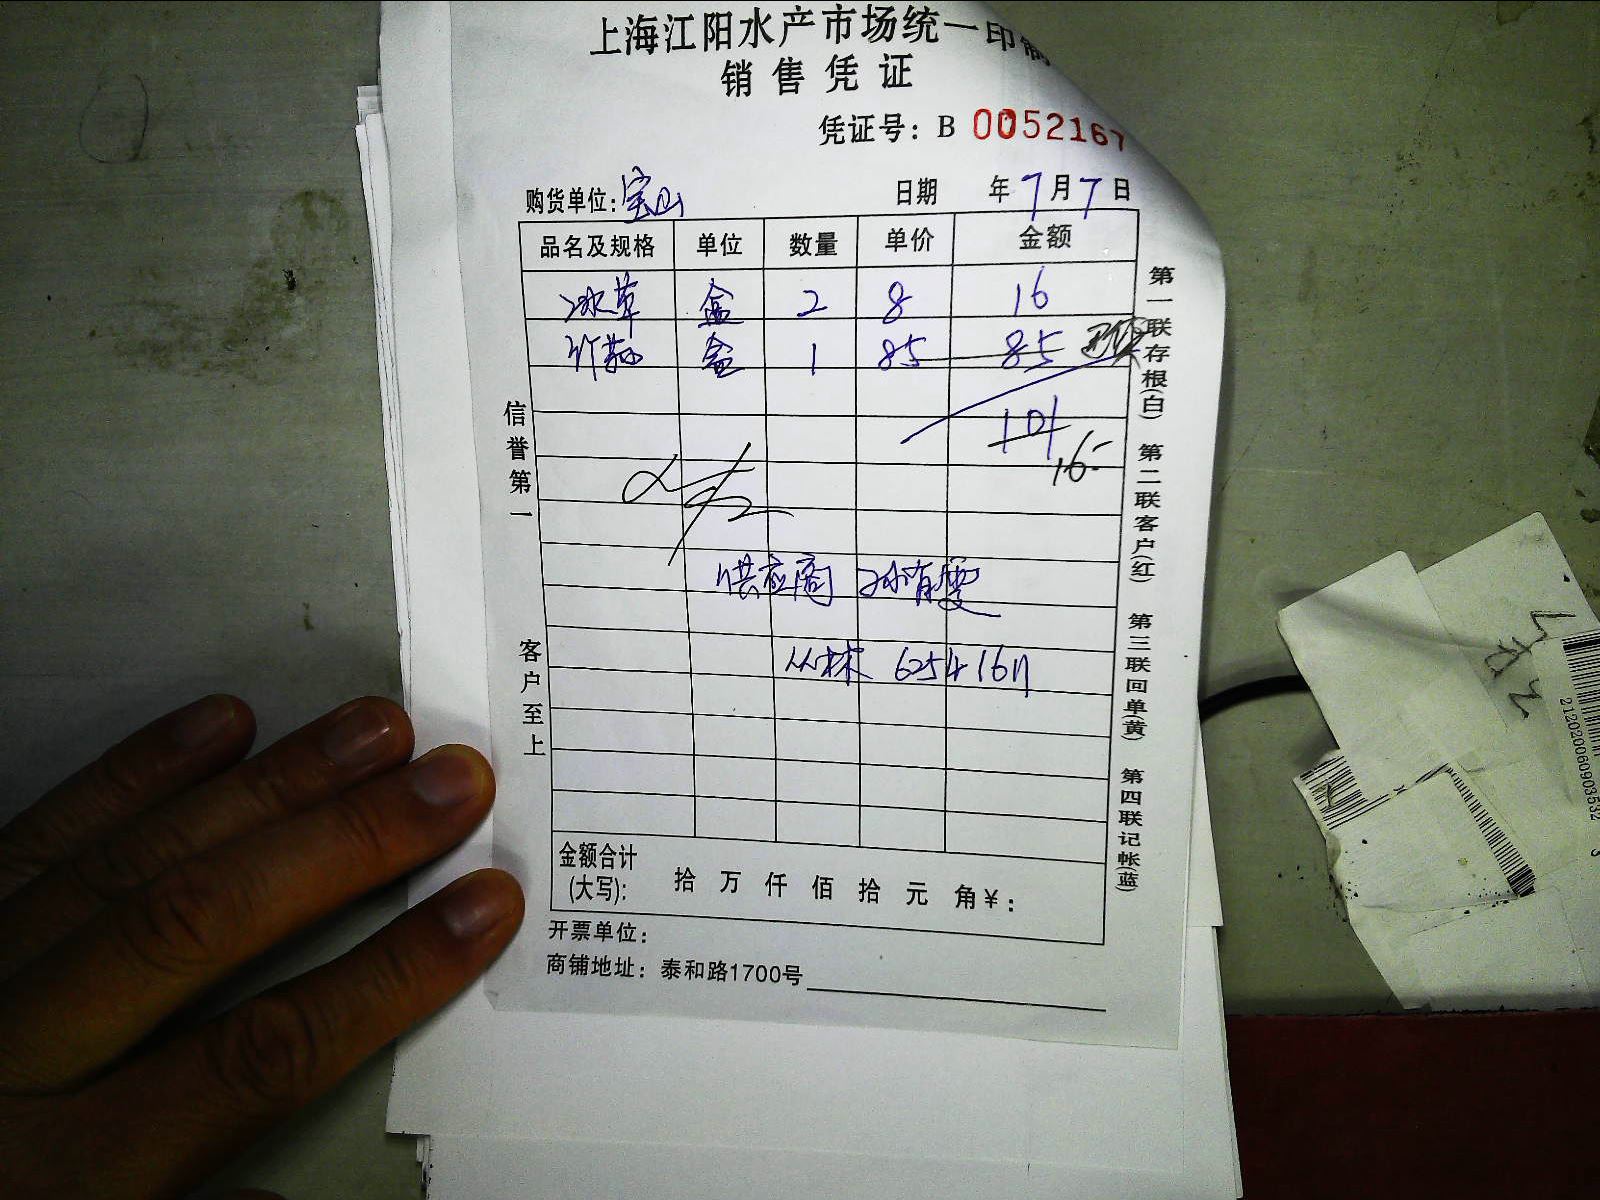 上海江阳水产市场统一印制
销售凭证
凭证号：B 0052167
购货单位：宝山 日期 年7月7日
品名及规格 单位 数量 单价 金额
冰草 盒 2 8 16
盒 1 85 85
101
16-
供应商
6254
金额合计
(大写)： 拾 万 仟 佰 拾 元 角￥：
开票单位：
商铺地址：泰和路1700号
信誉第一
客户至上
第一联存根(白) 第二联客户(红) 第三联回单(黄) 第四联记帐(蓝)
212020060903532